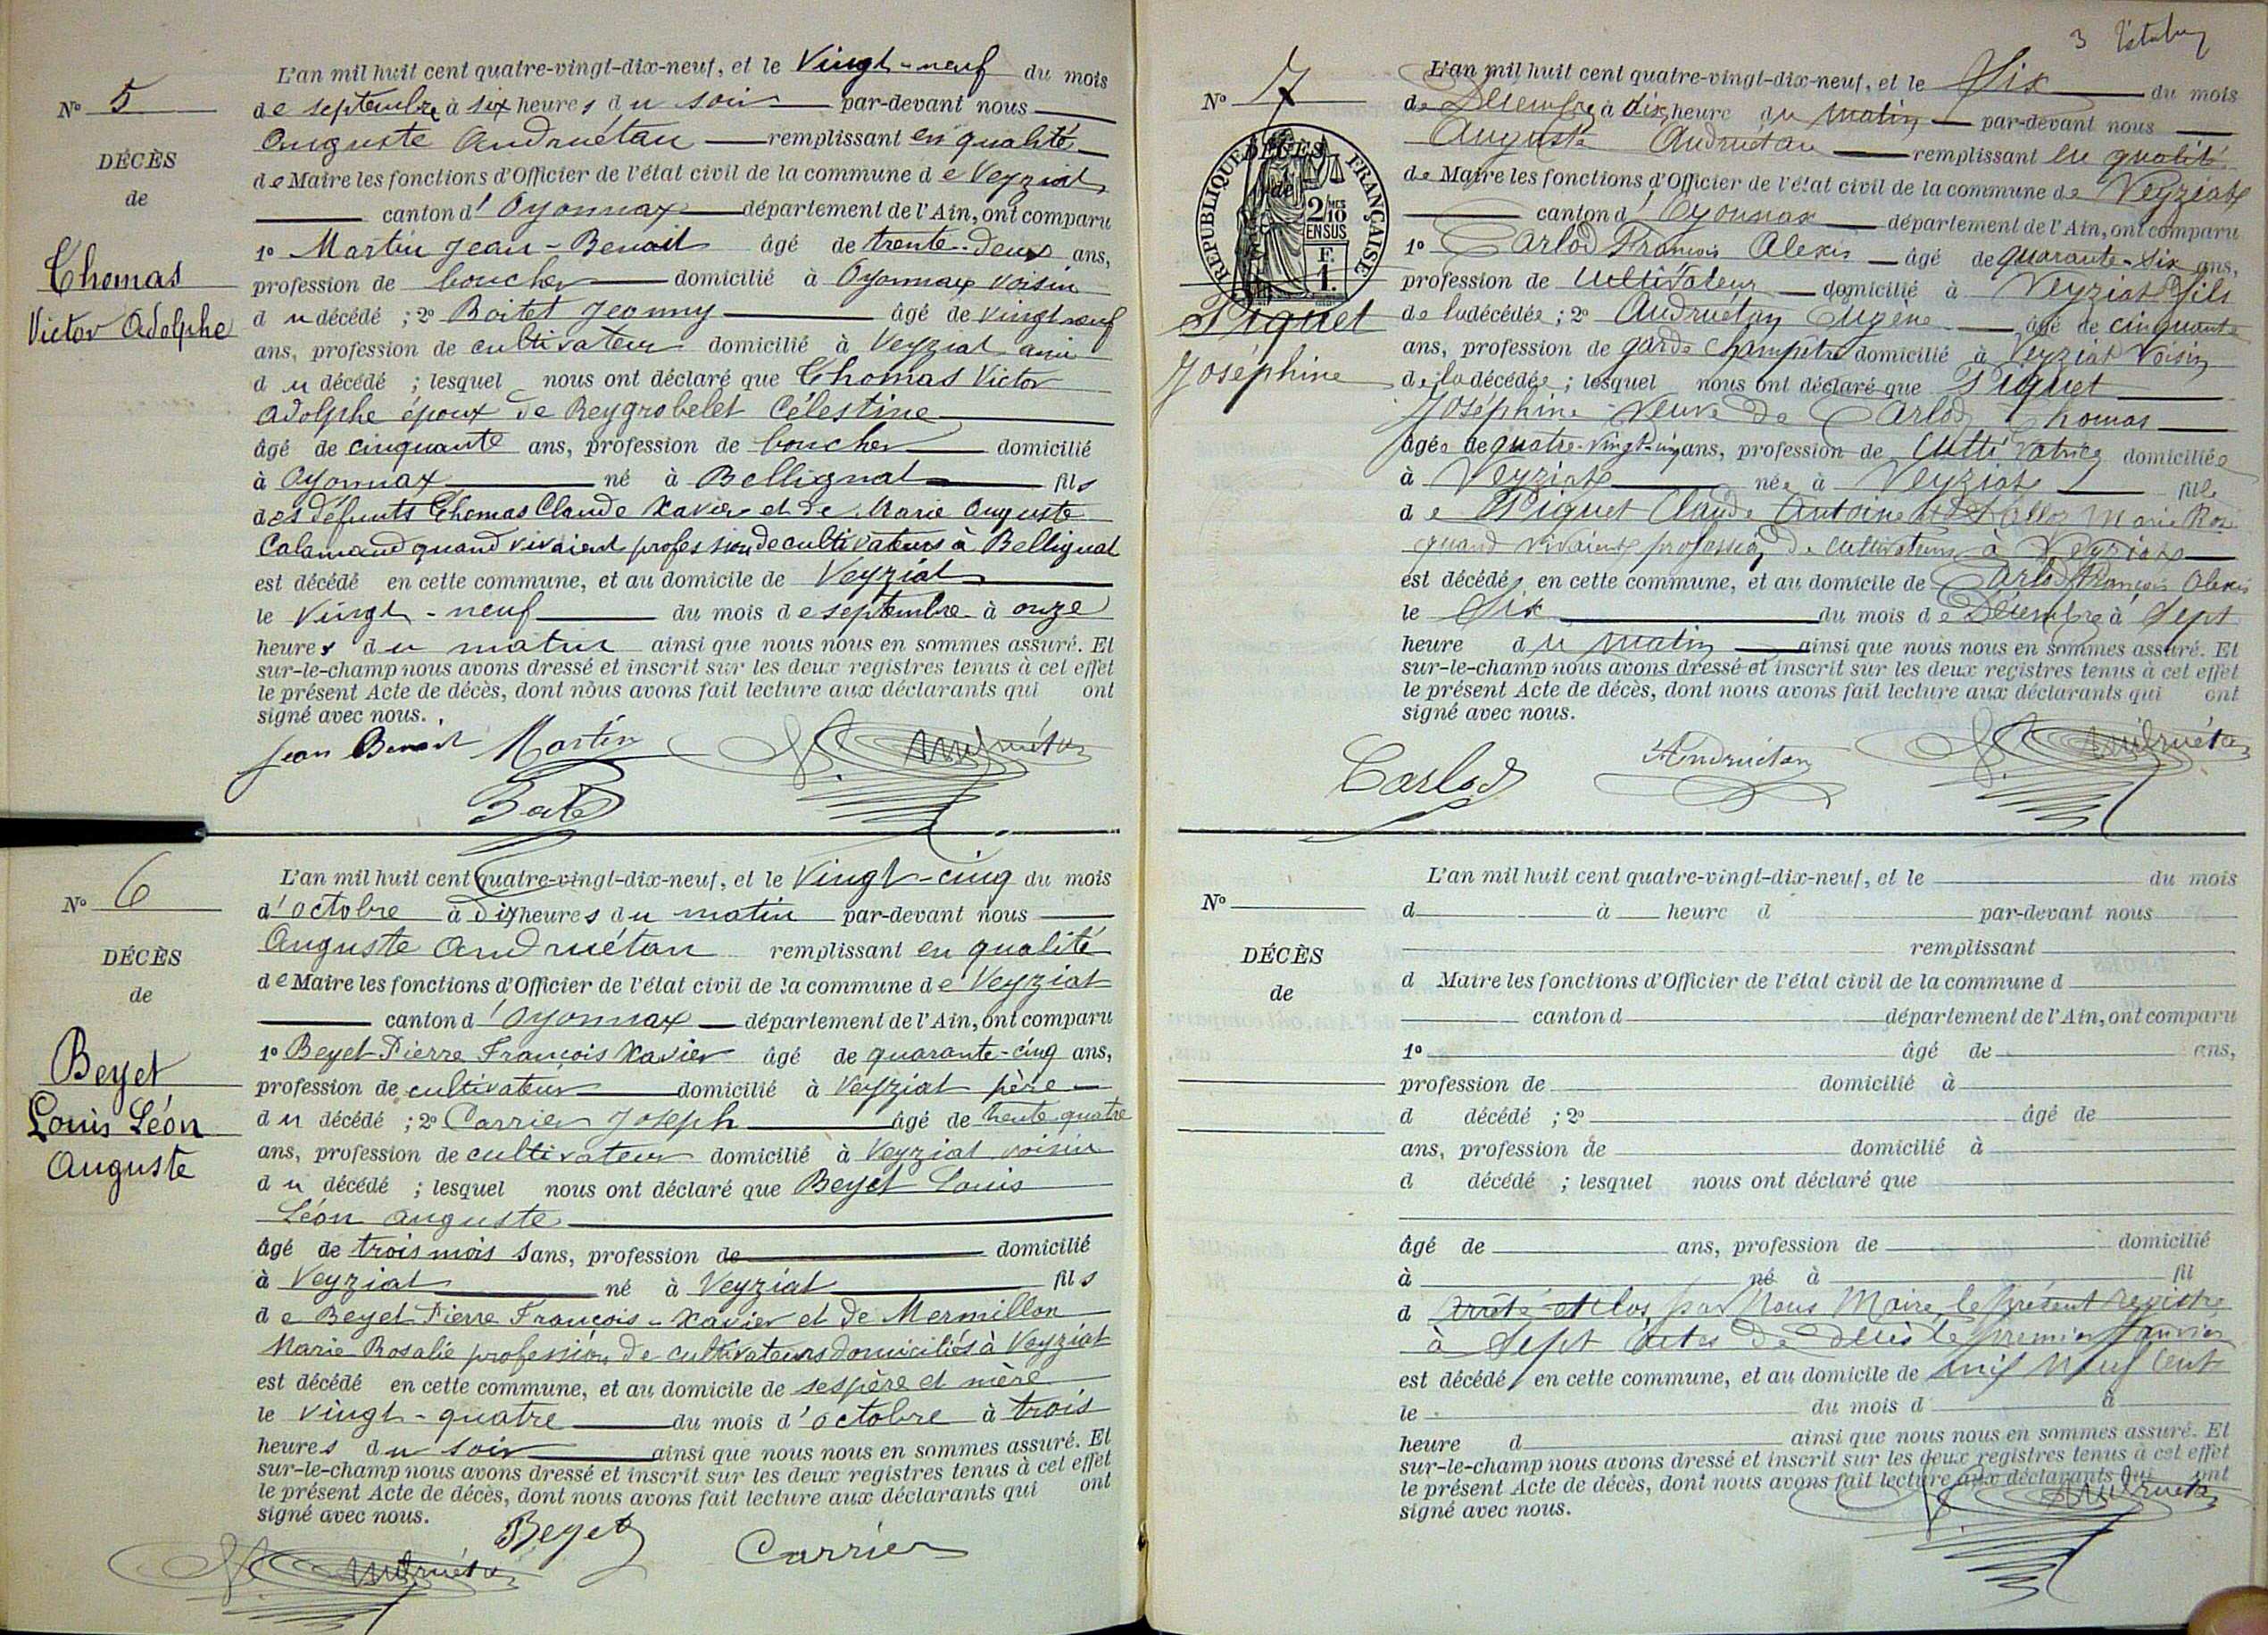 L'an mil huit cent quatre-vingt-dix-neuf, et le Vingt-neuf du mois
Nº 5
de septembre à six heures du soir par-devant nous
Auguste Andruétan remplissant en qualité
DÉCÈS
de Maire les fonctions d'Officier de l'état civil de la commune de Veyziat
de
canton d'Oyonnax département de l'Ain, ont comparu
1º Martin Jean-Benoit âgé de trente-deux ans,
Thomas
profession de boucher domicilié à Oyonnax voisin
Victor Adolphe
du décédé ; 2º Boitet Jeanny âgé de vingt neuf
ans, profession de cultivateur domicilié à Veyziat ami
du décédé ; lesquel nous ont déclaré que Thomas Victor
Adolphe époux de Reygrobelet Célestine
âgé de cinquante ans, profession de boucher domicilié
à Oyonnax né à Bellignat fils
des défunts Thomas Claude Xavier et de Marie Auguste
Calamand quand vivaient profession de cultivateurs à Bellignat
est décédé en cette commune, et au domicile de Veyziat
le Vingt-neuf du mois de septembre à onze
heures du matin ainsi que nous nous en sommes assuré. Et
sur-le-champ nous avons dressé et inscrit sur les deux registres tenus à cet effet
le présent Acte de décès, dont nous avons fait lecture aux déclarants qui ont
signé avec nous.
Jean Benoit Martin Andruétan
L'an mil huit cent quatre-vingt-dix-neuf, et le Vingt-cinq du mois
Nº 6
d'octobre à dix heures du matin par-devant nous
Auguste Andruétan remplissant en qualité
DÉCÈS
de Maire les fonctions d'Officier de l'état civil de la commune de Veyziat
de
canton d'Oyonnax département de l'Ain, ont comparu
1º Beyet Pierre François Xavier âgé de quarante-cinq ans,
Beyet
profession de cultivateur domicilié à Veyziat père
Louis Léon
du décédé ; 2º Carrier Joseph âgé de trente-quatre
Auguste
ans, profession de cultivateur domicilié à Veyziat voisin
du décédé ; lesquel nous ont déclaré que Beyet Louis
Léon Auguste
âgé de trois mois sans, profession de domicilié
à Veyziat né à Veyziat fils
de Beyet Pierre François-Xavier et de Mermillon
Marie Rosalie profession de cultivateurs domiciliés à Veyziat
est décédé en cette commune, et au domicile de ses père et mère
le vingt-quatre du mois d'octobre à trois
heures du soir ainsi que nous nous en sommes assuré. Et
sur-le-champ nous avons dressé et inscrit sur les deux registres tenus à cet effet
le présent Acte de décès, dont nous avons fait lecture aux déclarants qui ont
signé avec nous.
Beyet Carrier
Andruétan
3
L'an mil huit cent quatre-vingt-dix-neuf, et le Six du mois
Nº 7
de Décembre à dix heure du matin par-devant nous
Auguste Andruétan remplissant en qualité
DÉCÈS
de
RÉPUBLIQUE FRANÇAISE
2/10 EN SUS
F. 1.
de Maire les fonctions d'Officier de l'état civil de la commune de Veyziat
canton d'Oyonnax département de l'Ain, ont comparu
1º Carlod François Alexis âgé de quarante-six ans,
profession de cultivateur domicilié à Veyziat fils
Piquet
de la décédée ; 2º Andruétan Eugène âgé de cinquante
ans, profession de garde champêtre domicilié à Veyziat voisin
Joséphine
de la décédée ; lesquel nous ont déclaré que Piquet
Joséphine Veuve de Carlod Thomas
âgée de quatre-vingt-un ans, profession de Cultivatrice domiciliée
à Veyziat née à Veyziat fille
de Piquet Claude Antoine Marie Rose
quand vivaient profession de cultivateurs à Veyziat
est décédée en cette commune, et au domicile de Carlod François Alexis
le Six du mois de Décembre à Sept
heure du matin ainsi que nous nous en sommes assuré. Et
sur-le-champ nous avons dressé et inscrit sur les deux registres tenus à cet effet
le présent Acte de décès, dont nous avons fait lecture aux déclarants qui ont
signé avec nous.
Carlod Andruétan Andruétan
L'an mil huit cent quatre-vingt-dix-neuf, et le du mois
Nº
d à heure d par-devant nous
remplissant
DÉCÈS
d Maire les fonctions d'Officier de l'état civil de la commune d
de
canton d département de l'Ain, ont comparu
1º âgé de ans,
profession de domicilié à
d décédé ; 2º âgé de
ans, profession de domicilié à
d décédé ; lesquel nous ont déclaré que
âgé de ans, profession de domicilié
à né à fil
d Arrêté et clos par Nous Maire, le présent registre
à Sept actes de décès le premier Janvier
est décédé en cette commune, et au domicile de mil neuf cent
le du mois d à
heure d ainsi que nous nous en sommes assuré. Et
sur-le-champ nous avons dressé et inscrit sur les deux registres tenus à cet effet
le présent Acte de décès, dont nous avons fait lecture aux déclarants qui ont
signé avec nous.
Andruétan